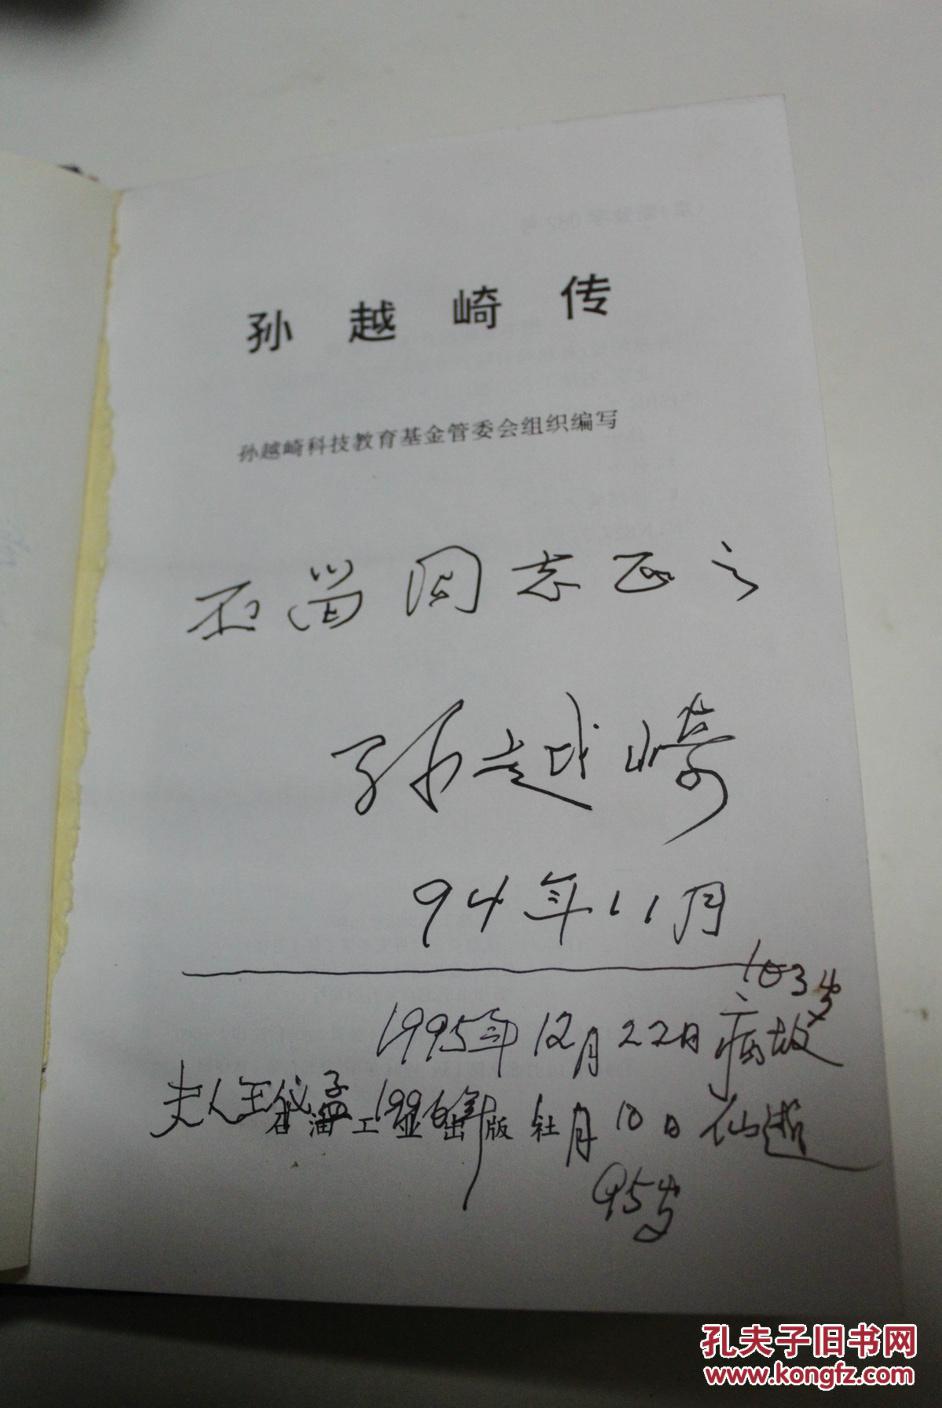 孙越崎传
孙越崎科技教育基金管委会组织编写
同志正之
孙越崎
94年11月
103岁
1995年12月22日病故
夫人王仪孟1996年 月10日仙逝
石油工业出版社
95岁
孔夫子旧书网
www.kongfz.com